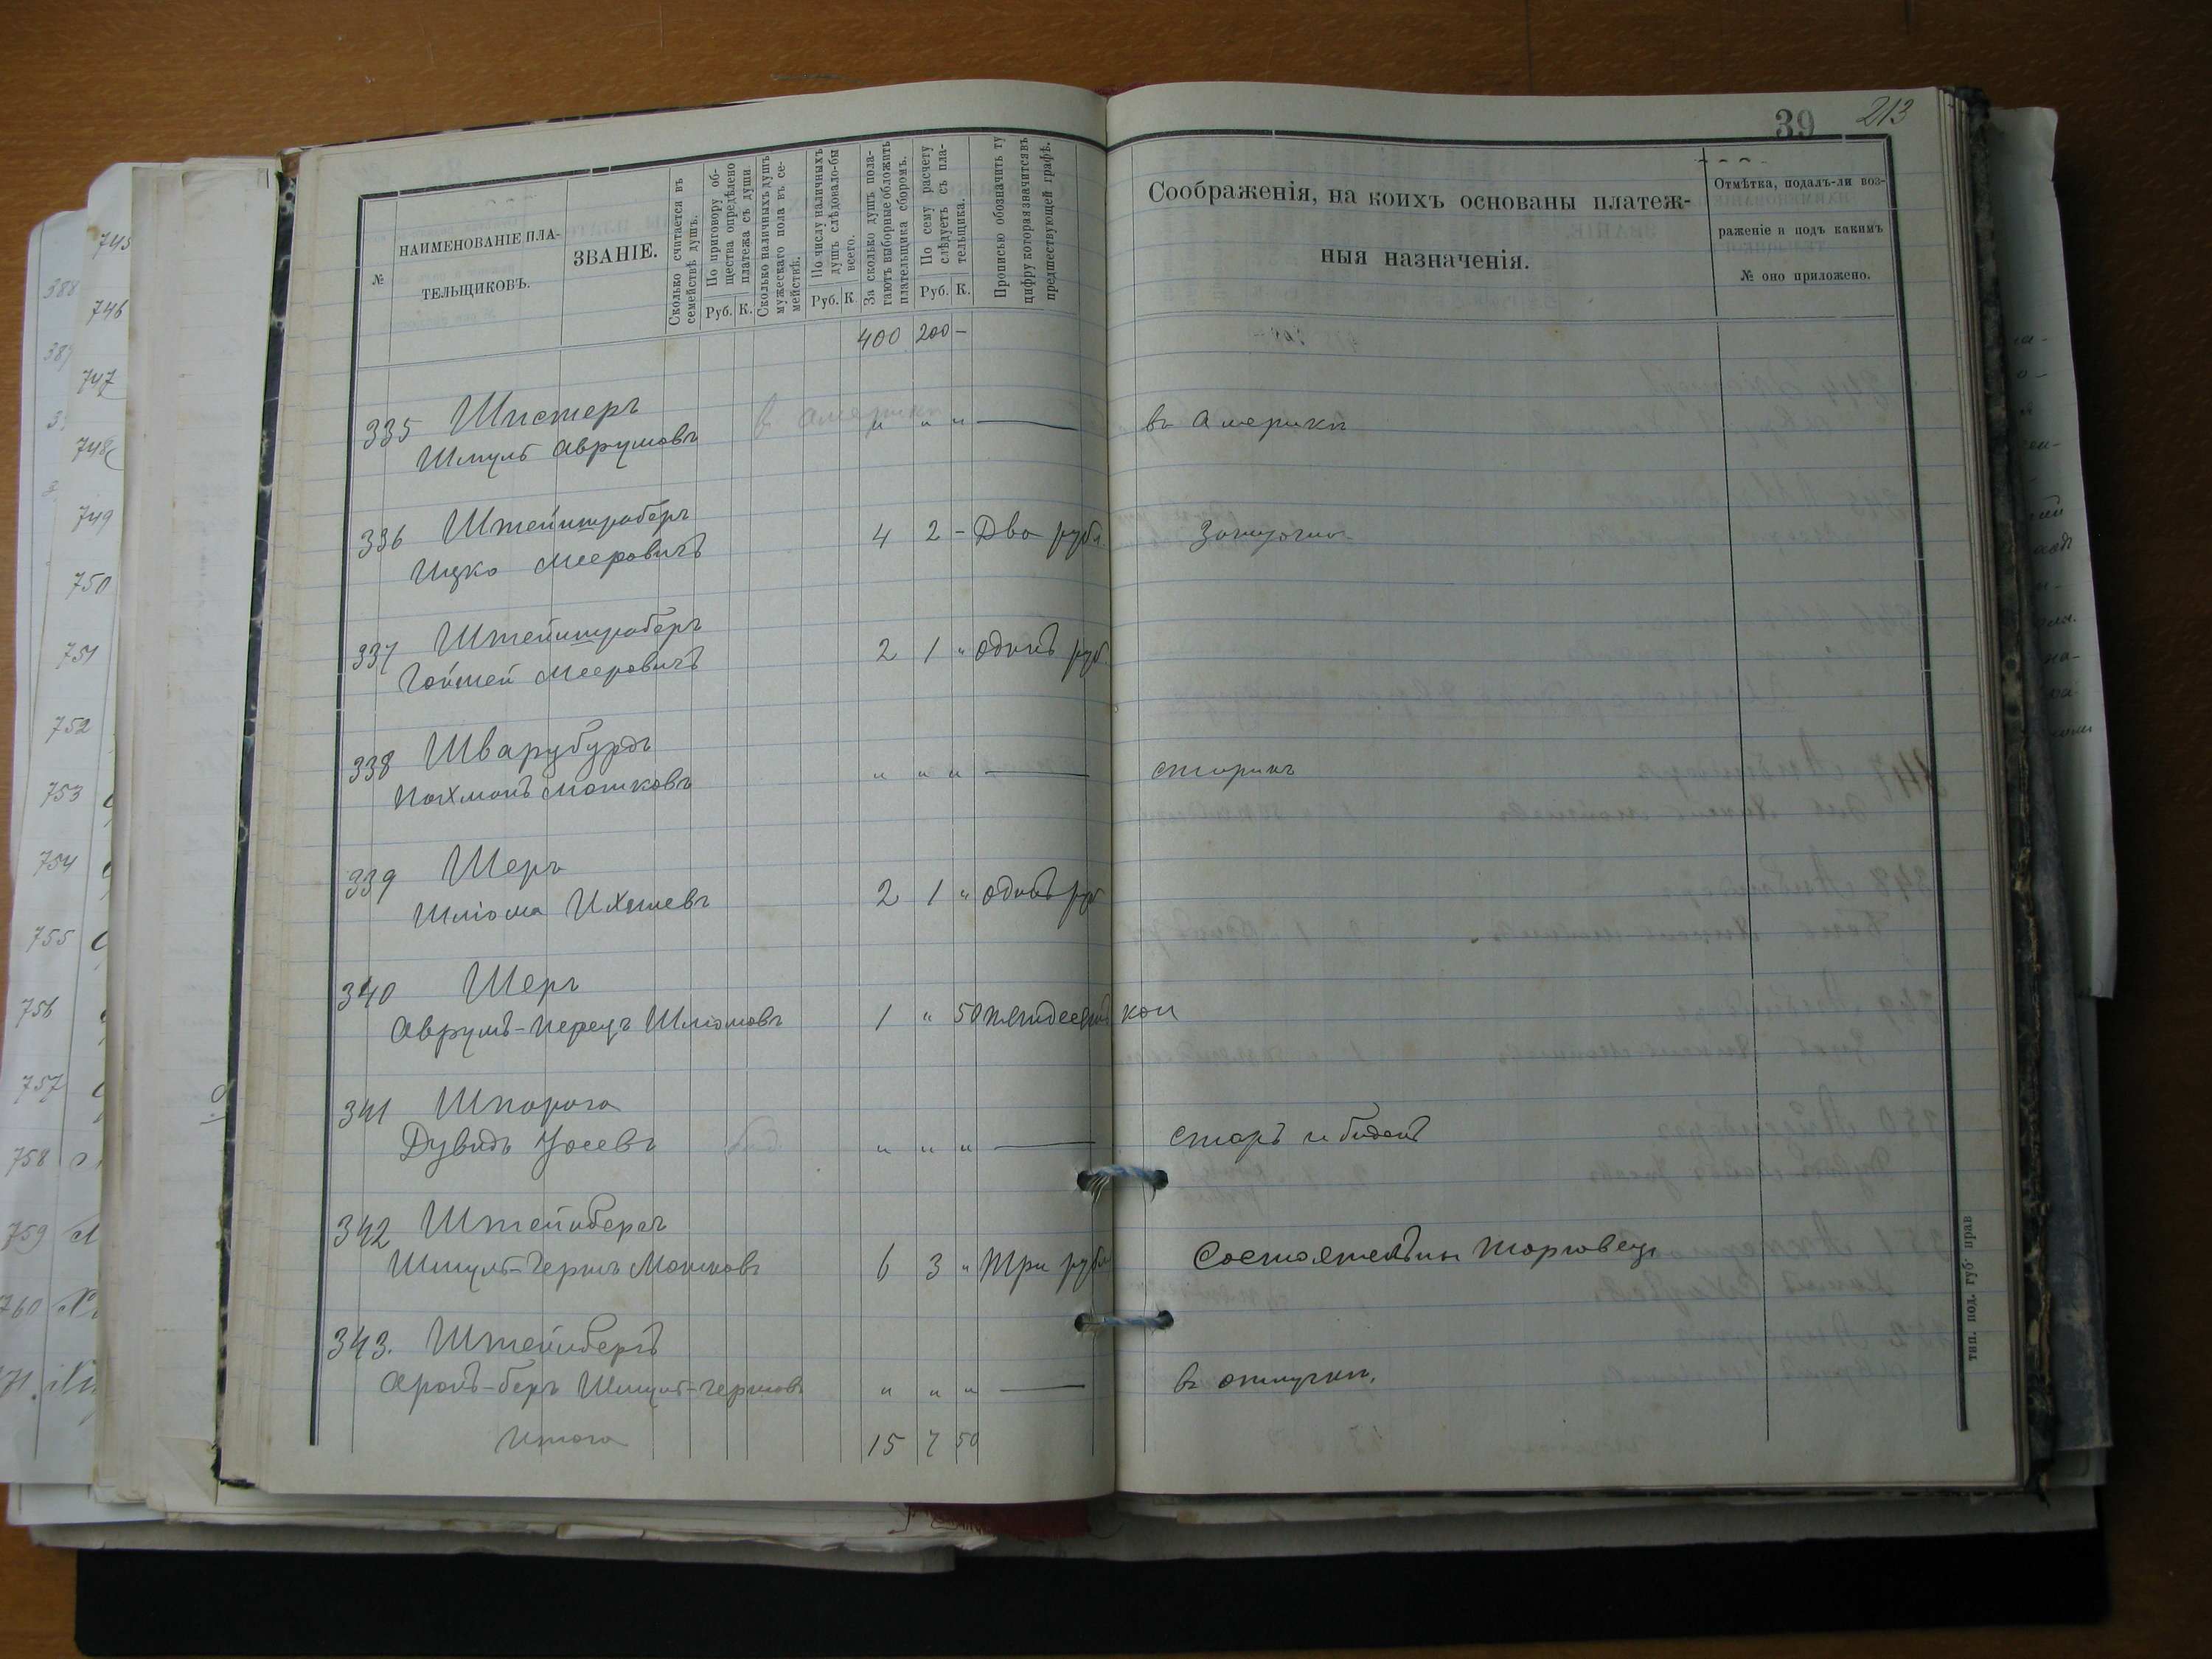 39
213
№
НАИМЕНОВАНІЕ ПЛА-
ТЕЛЬЩИКОВЪ.
ЗВАНІЕ.
Сколько считается въ
семействѣ душъ.
По приговору об-
щества опредѣлено
платежа съ души.
Руб. К.
Сколько наличныхъ душъ
мужескаго пола въ се-
мействѣ.
По числу наличныхъ
душъ слѣдовало-бы
всего.
Руб. К
За сколько душъ пола-
гаютъ выборные обложить
плательщика сборомъ.
По сему расчету
слѣдуетъ съ пла-
тельщика.
Руб. К.
Прописью обозначить ту
цифру которая значится въ
предшествующей графѣ.
Соображенія, на коихъ основаны платеж-
ныя назначенія.
Отмѣтка, подалъ-ли воз-
раженіе и подъ какимъ
№ оно приложено.
400 200 –
335 Шистеръ
Шмуль Аврумовъ в Америки " " " — въ Америки
336 Штейншрабербъ
Ицко Мееровичъ 4 2 – Два рубл.
337 Штейншраберъ
Гойшей Мееровичъ 2 1 " одинъ руб.
338 Шварцбурдъ
Нахманъ Мошковъ " " " — старикъ
339 Шеръ
Шлiома Ихилевъ 2 1 " одинъ руб
340 Шеръ
Аврумъ-Перецъ Шлiомовъ 1 " 50 пятдесятъ коп
341 Шпарага
Дувидъ Уселъ " " " — старъ и биденъ
342 Штейнбергъ
Шмуль-Гершъ Мошковъ 6 3 " Три рубл Состоятельны торговецъ
343. Штейнбергъ
Аронъ-Беръ Шмуль-Гершовъ " " " — в отлучки.
Итого 15 7 50
тип. под. губ. прав
745
746
747
748
749
750
751
752
753
754
755
756
757
758
759
760